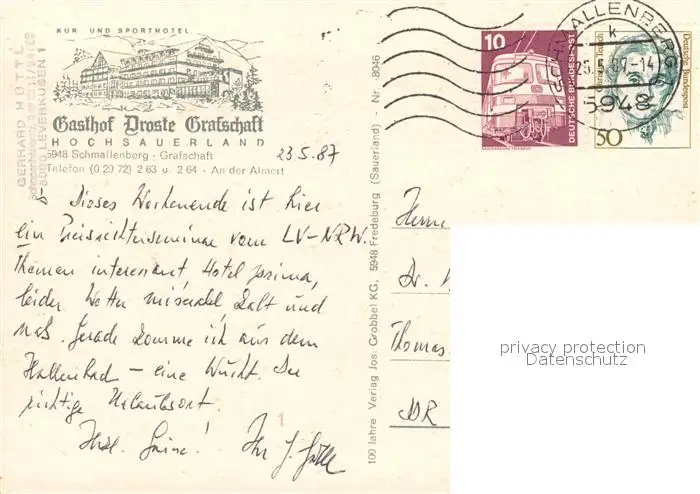 KUR UND SPORTHOTEL
Gasthof Droste Grafschaft
HOCHSAUERLAND
5948 Schmallenberg - Grafschaft
Telefon (0 29 72) 2 63 u. 2 64 - An der Almert
23.5.87
GERHARD HÜTTL
5090 LEVERKUSEN 1
Dieses Wochenende ist hier
ein Preisrichterseminar vom LV-NRW.
Themen interessant, Hotel prima,
leider Wetter miserabel, kalt und
naß. Gerade komme ich aus dem
Hallenbad – eine Wucht. Der
richtige Urlaubsort.
Herzl. Grüße! Ihr G. Hüttl
1
100 Jahre Verlag Jos. Grobbel KG, 5948 Fredeburg (Sauerland) - Nr. 8046
10
DEUTSCHE BUNDESPOST
50
Deutsche Bundespost
SCHMALLENBERG
k
25.5.87-14
5948
Herrn
Dr.
Thomas
DDR
privacy protection
Datenschutz